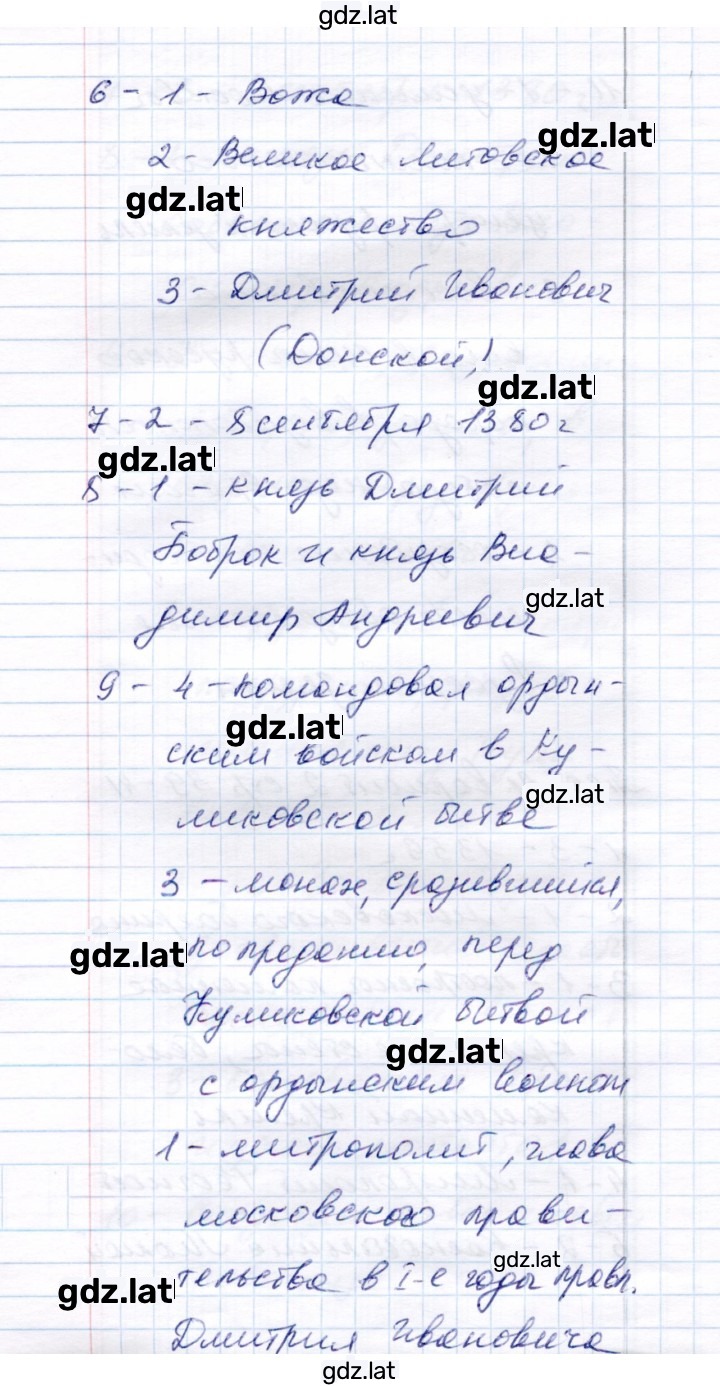 gdz.lat
6 - 1 - Вожа
gdz.lat
2 - Великое Литовское
gdz.lat
княжество
3 - Дмитрий Иванович
(Донской)
gdz.lat
7 - 2 - 8 сентября 1380 г
gdz.lat
8 - 1 - князь Дмитрий
Боброк и князь Вла-
gdz.lat
димир Андреевич
9 - 4 - командовал ордын-
gdz.lat
ским войском в Ку-
gdz.lat
ликовской битве
3 - монах, сразившийся,
gdz.lat
по преданию, перед
Куликовской битвой
gdz.lat
с ордынским воином
1 - митрополит, глава
московского прави-
gdz.lat
тельства в I-е годы правл.
gdz.lat
Дмитрия Ивановича
gdz.lat